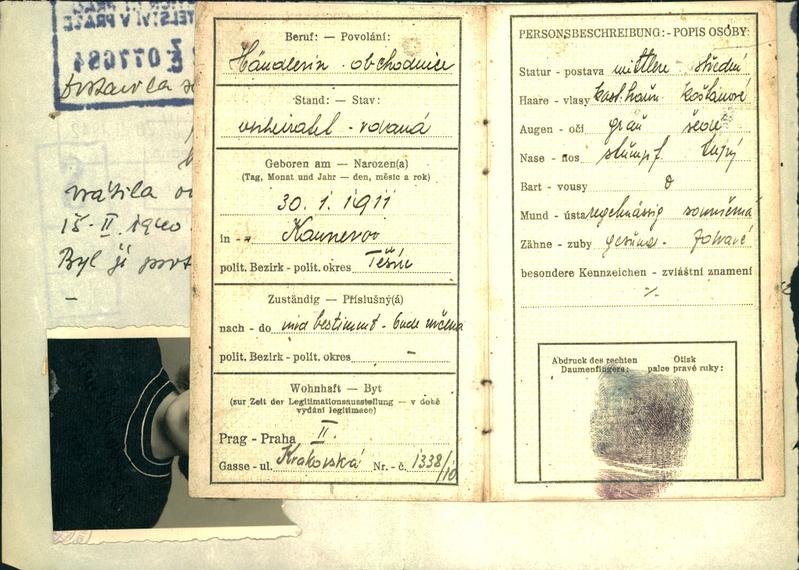 Z E 077081
vrátila
15-II.1940.
Byl jí
Beruf: — Povolání:
Händlerin - obchodnice
Stand: — Stav:
verheiratet - vdaná
Geboren am — Narozen(a)
(Tag, Monat und Jahr — den, měsíc a rok)
30. 1. 1911
in - v
polit. Bezirk - polit. okres Těšín
Zuständig — Příslušný(á)
nach - do wird bestimmt - bude určena
polit. Bezirk - polit. okres —
Wohnhaft — Byt
(zur Zeit der Legitimationsausstellung — v době
vydání legitimace)
Prag - Praha II.
Gasse - ul. Krakovská Nr. - č. 1338/10
PERSONSBESCHREIBUNG: - POPIS OSOBY:
Statur - postava mittlere střední
Haare - vlasy kaštanové
Augen - oči grau šedé
Nase - nos stumpf tupý
Bart - vousy 0
Mund - ústa regelmässig souměrná
Zähne - zuby gesund - zdravé
besondere Kennzeichen - zvláštní znamení
-/-
Abdruck des rechten Daumenfingers:
Otisk palce pravé ruky: